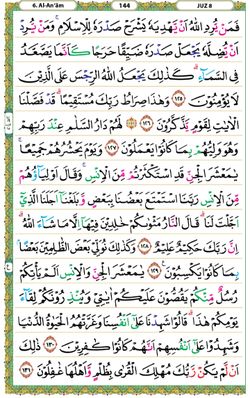 6. Al-An'ām 144 JUZ 8
فَمَن يُرِدِ ٱللَّهُ أَن يَهْدِيَهُۥ يَشْرَحْ صَدْرَهُۥ لِلْإِسْلَٰمِ ۖ وَمَن يُرِدْ
أَن يُضِلَّهُۥ يَجْعَلْ صَدْرَهُۥ ضَيِّقًا حَرَجًا كَأَنَّمَا يَصَّعَّدُ
فِى ٱلسَّمَآءِ ۚ كَذَٰلِكَ يَجْعَلُ ٱللَّهُ ٱلرِّجْسَ عَلَى ٱلَّذِينَ
لَا يُؤْمِنُونَ ١٢٥ وَهَٰذَا صِرَٰطُ رَبِّكَ مُسْتَقِيمًا ۗ قَدْ فَصَّلْنَا
ٱلْءَايَٰتِ لِقَوْمٍ يَذَّكَّرُونَ ١٢٦ لَهُمْ دَارُ ٱلسَّلَٰمِ عِندَ رَبِّهِمْ
وَهُوَ وَلِيُّهُم بِمَا كَانُوا۟ يَعْمَلُونَ ١٢٧ وَيَوْمَ يَحْشُرُهُمْ جَمِيعًا
يَٰمَعْشَرَ ٱلْجِنِّ قَدِ ٱسْتَكْثَرْتُم مِّنَ ٱلْإِنسِ ۖ وَقَالَ أَوْلِيَآؤُهُم
مِّنَ ٱلْإِنسِ رَبَّنَا ٱسْتَمْتَعَ بَعْضُنَا بِبَعْضٍ وَبَلَغْنَآ أَجَلَنَا ٱلَّذِىٓ
أَجَّلْتَ لَنَا ۚ قَالَ ٱلنَّارُ مَثْوَىٰكُمْ خَٰلِدِينَ فِيهَآ إِلَّا مَا شَآءَ ٱللَّهُ ۗ
إِنَّ رَبَّكَ حَكِيمٌ عَلِيمٌ ١٢٨ وَكَذَٰلِكَ نُوَلِّى بَعْضَ ٱلظَّٰلِمِينَ بَعْضًۢا
بِمَا كَانُوا۟ يَكْسِبُونَ ١٢٩ يَٰمَعْشَرَ ٱلْجِنِّ وَٱلْإِنسِ أَلَمْ يَأْتِكُمْ
رُسُلٌ مِّنكُمْ يَقُصُّونَ عَلَيْكُمْ ءَايَٰتِى وَيُنذِرُونَكُمْ لِقَآءَ
يَوْمِكُمْ هَٰذَا ۚ قَالُوا۟ شَهِدْنَا عَلَىٰٓ أَنفُسِنَا ۖ وَغَرَّتْهُمُ ٱلْحَيَوٰةُ ٱلدُّنْيَا
وَشَهِدُوا۟ عَلَىٰٓ أَنفُسِهِمْ أَنَّهُمْ كَانُوا۟ كَٰفِرِينَ ١٣٠ ذَٰلِكَ
أَن لَّمْ يَكُن رَّبُّكَ مُهْلِكَ ٱلْقُرَىٰ بِظُلْمٍ وَأَهْلُهَا غَٰفِلُونَ ١٣١